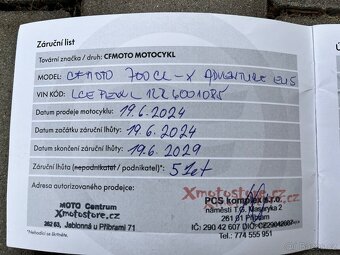 Záruční list
Tovární značka / druh: CFMOTO MOTOCYKL
MODEL: CFMOTO 700CL-X ADVENTURE EU5
VIN KÓD:
Datum prodeje motocyklu: 19.6.2024
Datum začátku záruční lhůty: 19.6.2024
Datum ukončení záruční lhůty: 19.6.2029
Záruční lhůta (nepodnikatel / podnikatel)*: 5 let
Adresa autorizovaného prodejce:
MOTO Centrum
Xmotostore.cz
262 63, Jablonná u Příbrami 71
Xmotostore.cz
PCS komplex s.r.o.
náměstí T.G. Masaryka
261 01 Příbram
IČ: 290 42 607
Tel.: 774 555 951
*Nehodící se škrtněte.